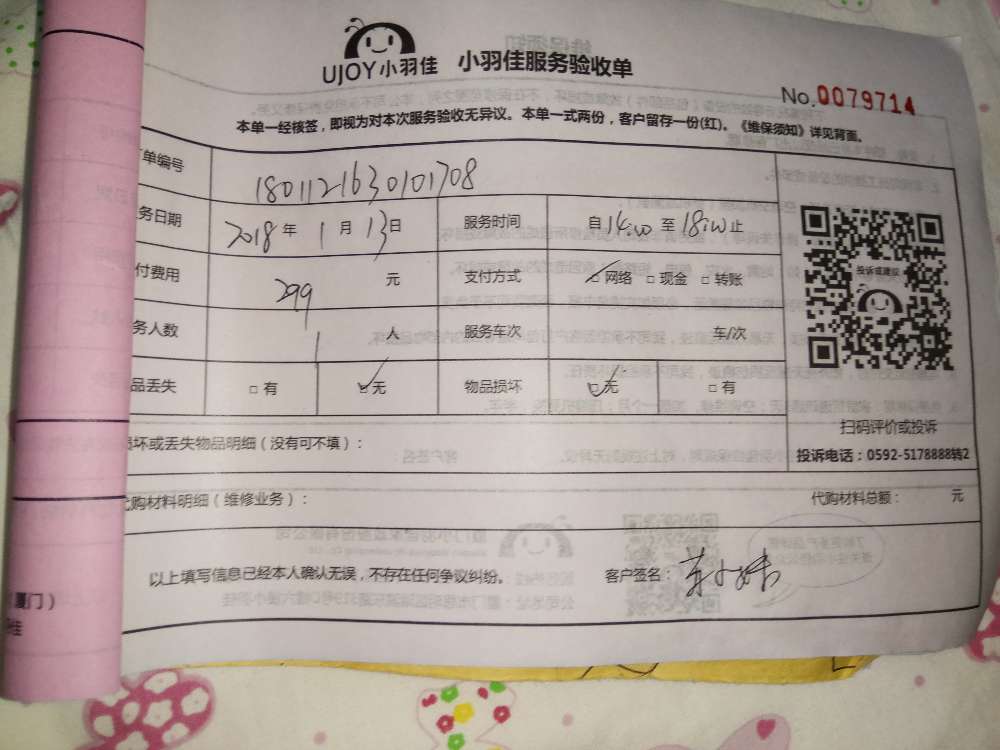 UJOY小羽佳 小羽佳服务验收单
No.0079714
本单一经核签，即视为对本次服务验收无异议。本单一式两份，客户留存一份(红)。《维保须知》详见背面。
单编号 1801121630101708
务日期 2018年1月13日 服务时间 自14:00至18:00止
付费用 299元 支付方式 □网络 □现金 □转账
投诉或建议
务人数 1人 服务车次 车/次
品丢失 □有 □无 物品损坏 □无 □有
扫码评价或投诉
损坏或丢失物品明细（没有可不填）：
投诉电话：0592-5178888转2
代购材料明细（维修业务）：
代购材料总额： 元
以上填写信息已经本人确认无误，不存在任何争议纠纷。 客户签名：
厦门）
佳